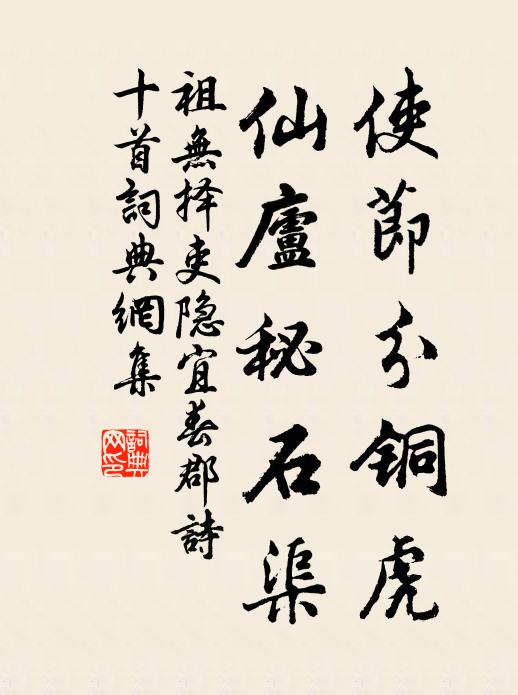 使節分铜虎
仙廬秘石渠
祖無择吏隐宜春郡詩
十首詞典網集
詞典
网印